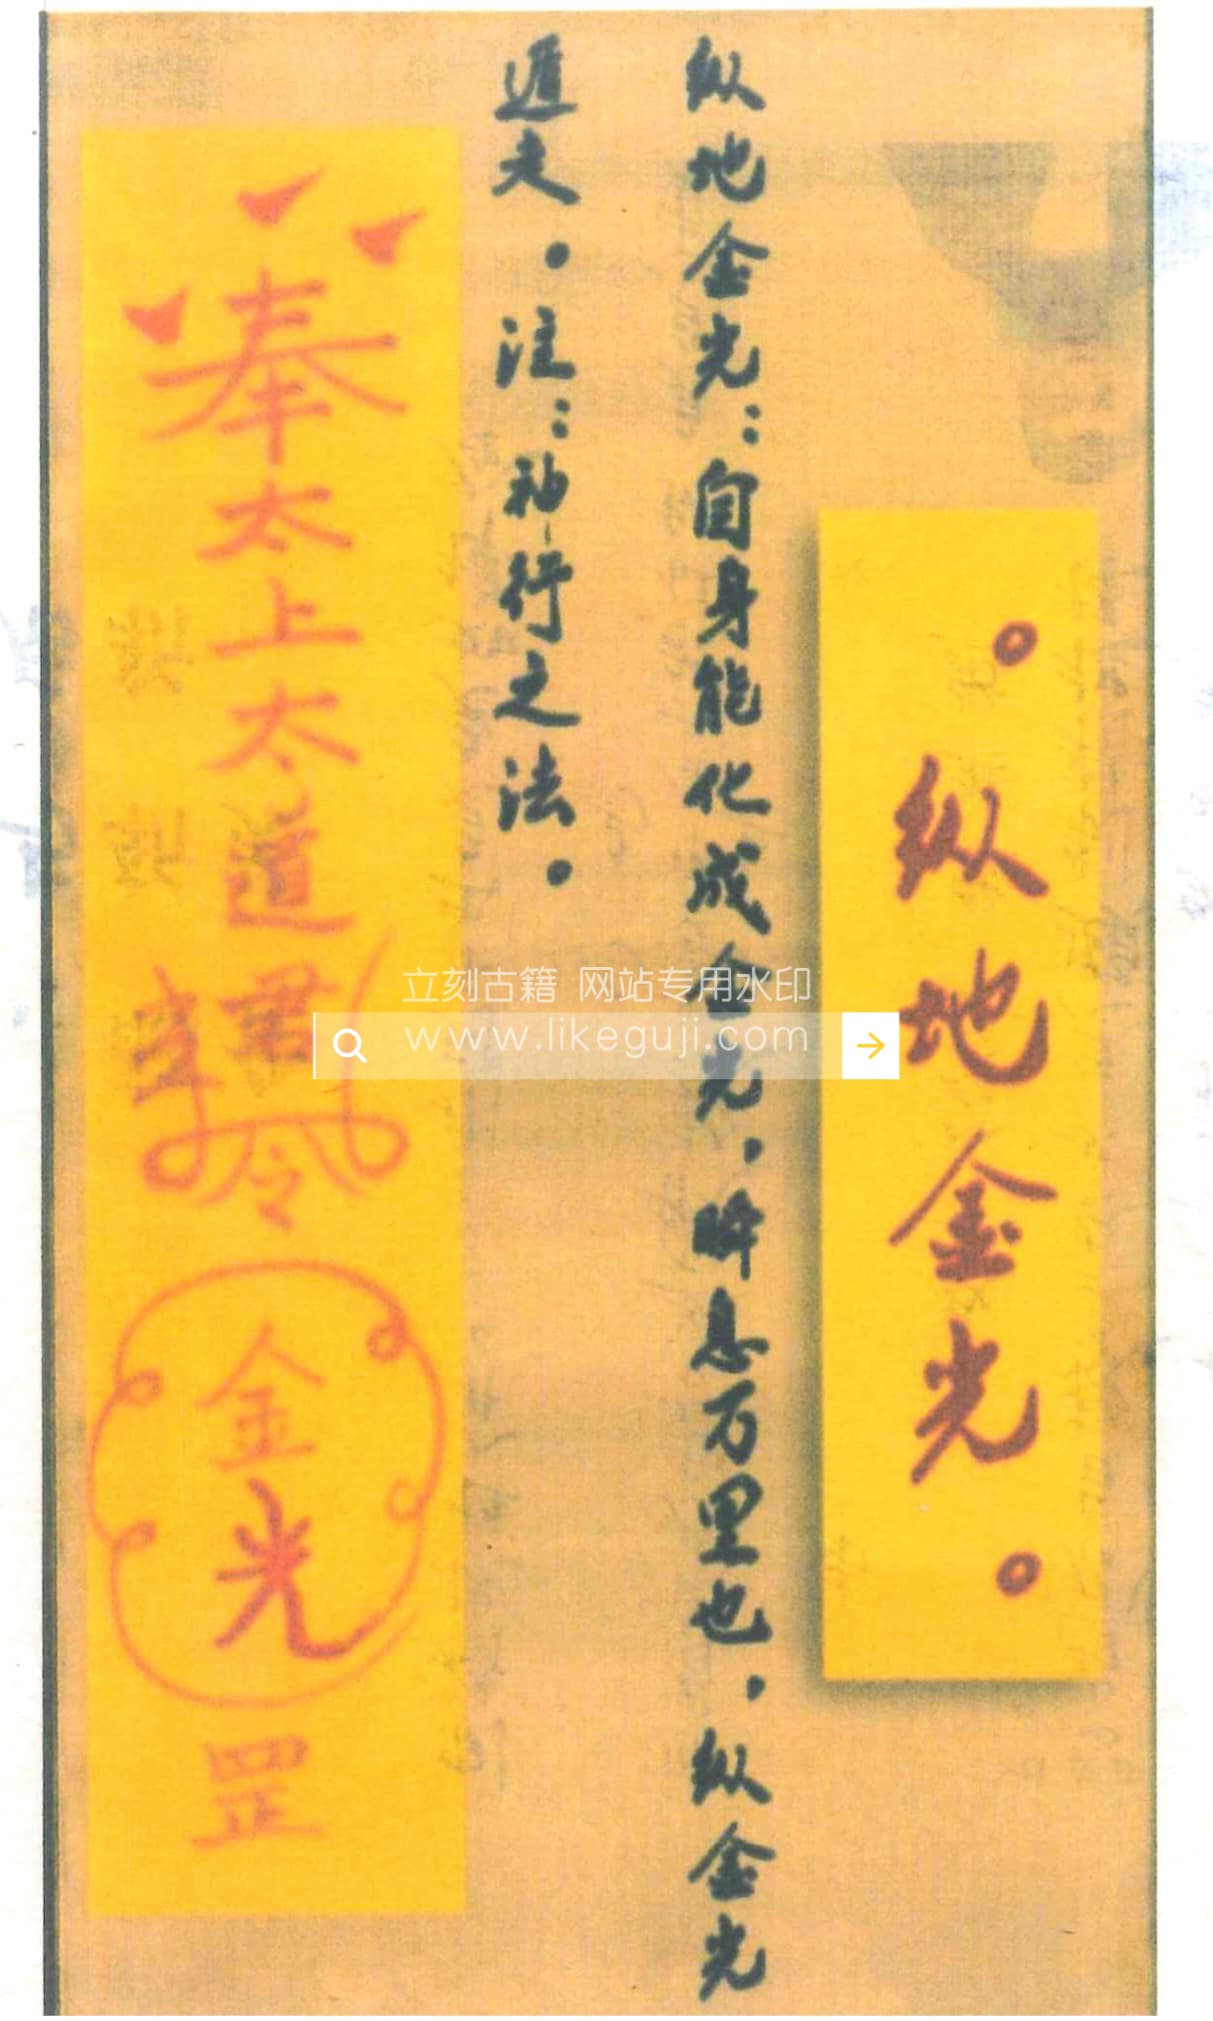 。纵地金光。
纵地金光：自身能化成金光，瞬息万里也，纵金光
遁走。注：神行之法。
奉太上太道君
令
金光
罡
立刻古籍 网站专用水印
www.likeguji.com